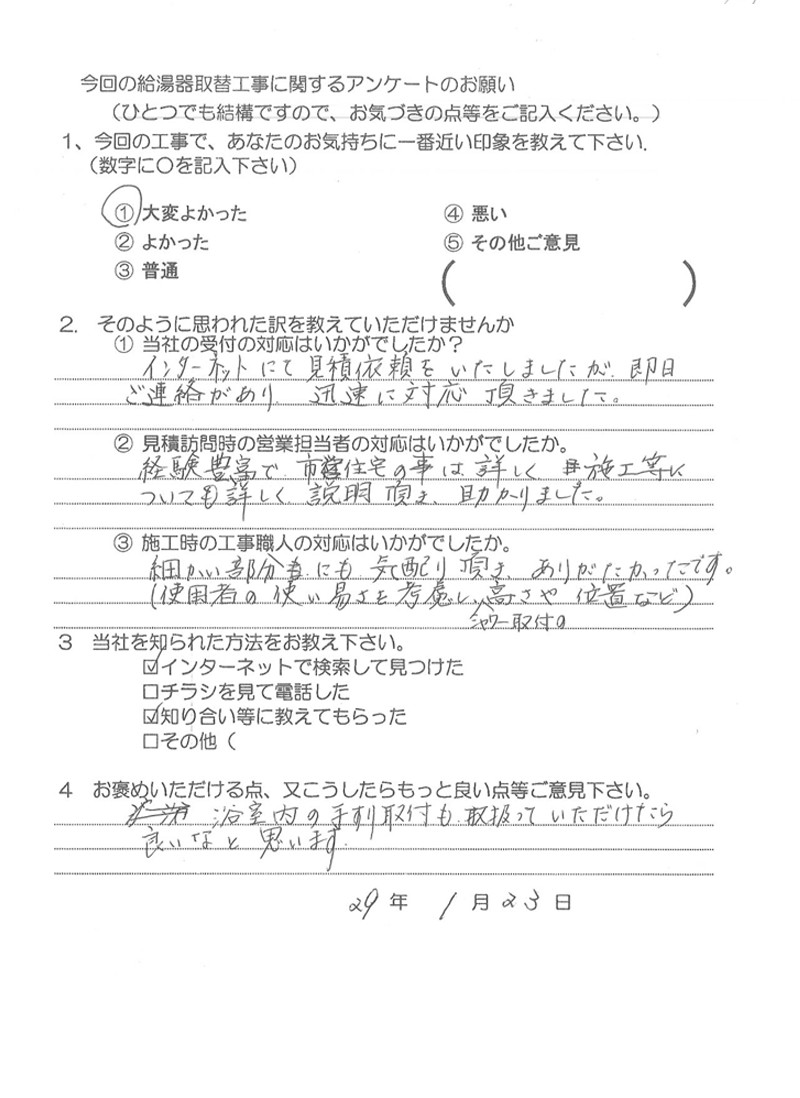 今回の給湯器取替工事に関するアンケートのお願い
（ひとつでも結構ですので、お気づきの点等をご記入ください。）
1、今回の工事で、あなたのお気持ちに一番近い印象を教えて下さい.
（数字に〇を記入下さい）
① 大変よかった ④ 悪い
② よかった ⑤ その他ご意見
③ 普通 （ ）
2. そのように思われた訳を教えていただけませんか
① 当社の受付の対応はいかがでしたか？
インターネットにて見積依頼をいたしましたが、即日
ご連絡があり 迅速に対応頂きました。
② 見積訪問時の営業担当者の対応はいかがでしたか。
経験豊富で、市営住宅の事は詳しく 施工等に
ついても詳しく説明頂き、助かりました。
③ 施工時の工事職人の対応はいかがでしたか。
細かい部分にも気配り頂き、ありがたかったです。
（使用者の使い易さを考慮し、高さや位置など）
シャワー取付の
3 当社を知られた方法をお教え下さい。
☑インターネットで検索して見つけた
□チラシを見て電話した
☑知り合い等に教えてもらった
□その他（
4 お褒めいただける点、又こうしたらもっと良い点等ご意見下さい。
浴室内の手すり取付も、取扱っていただけたら
良いなと思います.
29年 1月23日